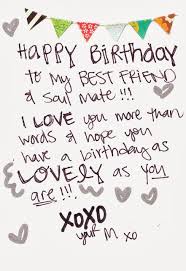 HAPPY BIRTHDAY
to my BEST FRIEND
& Soul mate!!!
I LOVE you more than
words & hope you
have a birthday as
LOVELY as you
are!!!
XOXO
your M xo